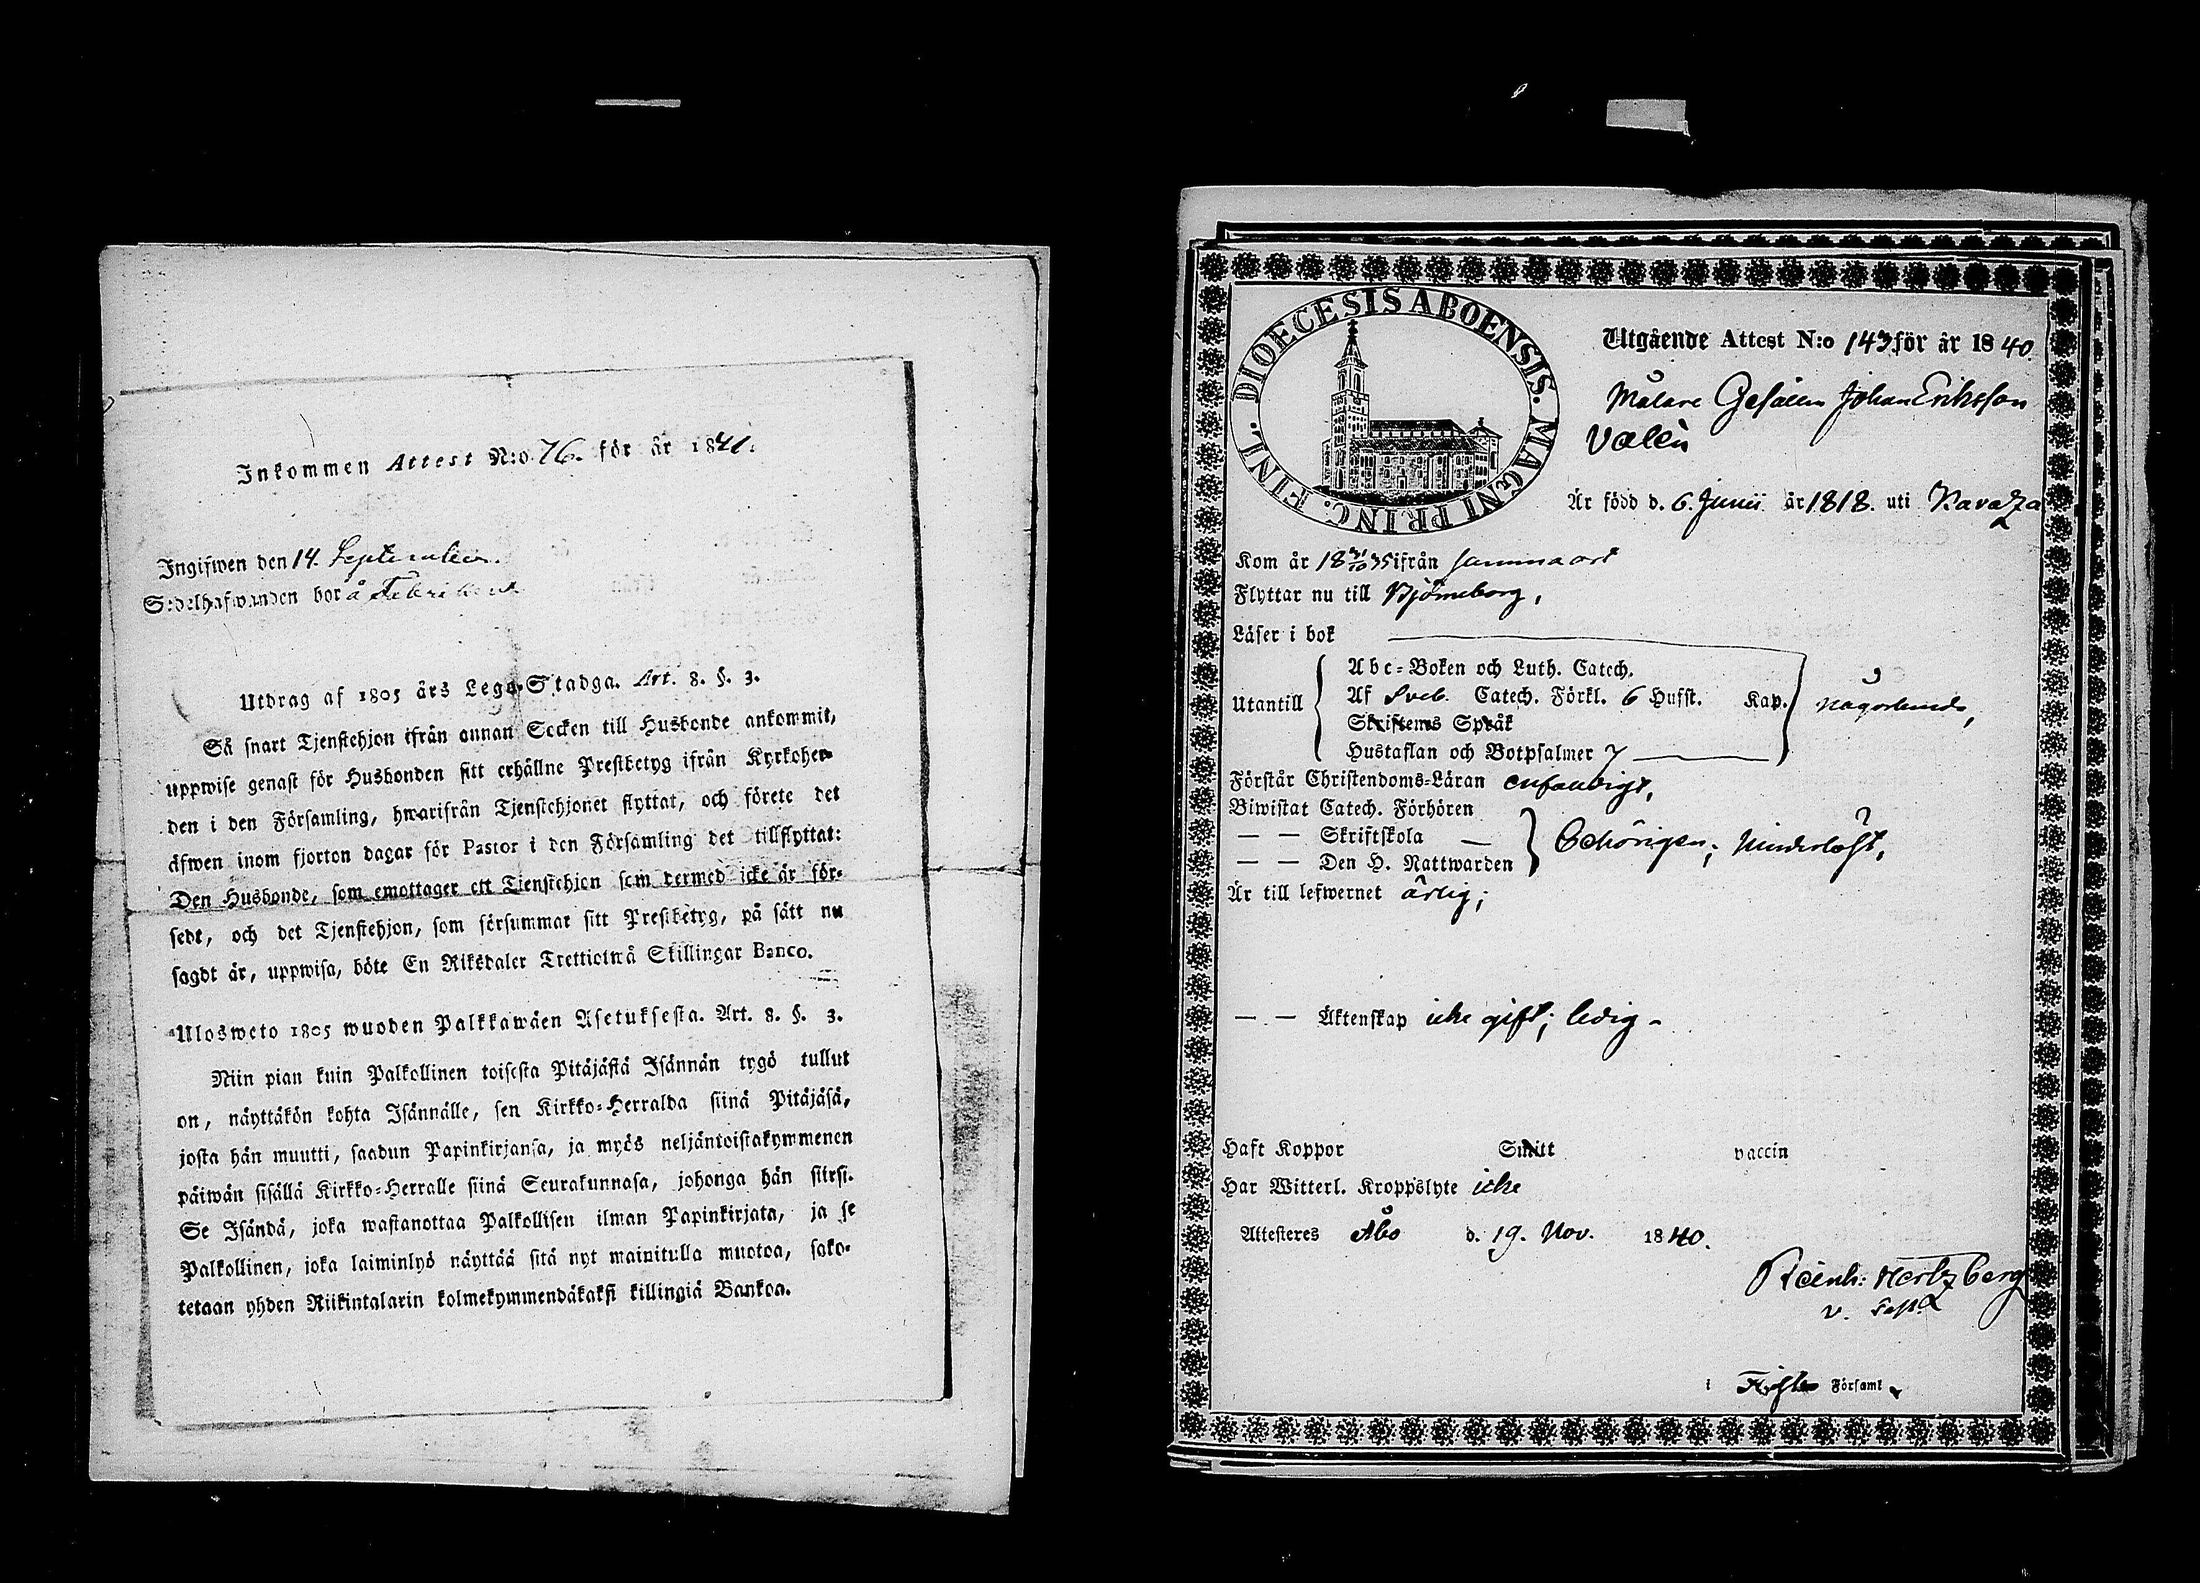 Inkommen Attest N:o 76. för år 1841.
Ingifwen den 14. September.
Sedelhafwanden bor å
Utdrag af 1805 års Lego-Stadga. Art. 8. §. 3.
Så snart Tjenstehjon ifrån annan Socken till Husbonde ankommit,
uppwise genast för Husbonden sitt erhållne Prestbetyg ifrån Kyrkoher-
den i den Församling, hwarifrån Tjenstehjonet flyttat, och förete det
äfwen inom fjorton dagar för Pastor i den Församling det tillflyttat:
Den Husbonde, som emottager ett Tjenstehjon som dermed icke är för-
sedt, och det Tjenstehjon, som försummar sitt Prestbetyg, på sätt nu
sagdt är, uppwisa, böte En Riksdaler Trettiotwå Skillingar Banco.
Ulosweto 1805 wuoden Palkkawäen Asetuksesta. Art. 8. §. 3.
Niin pian kuin Palkollinen toisesta Pitäjästä Isännän tygö tullut
on, näyttäkön kohta Isännälle, sen Kirkko-Herralda siinä Pitäjäsä,
josta hän muutti, saadun Papinkirjansa, ja myös neljäntoistakymmenen
päiwän sisällä Kirkko-Herralle siinä Seurakunnasa, johonga hän siirsi.
Se Isändä, joka wastanottaa Palkollisen ilman Papinkirjata, ja se
Palkollinen, joka laiminlyö näyttää sitä nyt mainitulla muotoa, sako-
tetaan yhden Riikintalarin kolmekymmendäkaksi killingiä Bankoa.
DIOECESIS ABOENSIS. MAGNI PRINC. FINL.
Utgående Attest N:o 143 för år 1840
Målare Gesällen Johan Eriksson
Valén
Är född d. 6. Junii år 1818. uti
Kom år 18 31/10 35 ifrån samma ort
Flyttar nu till Björneborg,
Läser i bok
Abc-Boken och Luth. Catech.
Utantill Af Sveb. Catech. Förkl. 6 Hufst. Kap. någorlunda,
Skriftens Språk
Hustaflan och Botpsalmer 7
Förstår Christendoms-Läran enfaldigt,
Biwistat Catech. Förhören
— — Skriftskola — Behörigen; Hinderlöst,
— — Den H. Nattwarden
Är till lefwernet ärlig;
— — Äktenskap icke gift; ledig -
Haft Koppor Smitt vaccin
Har Witterl. Kroppslyte icke
Attesteres Åbo d. 19. Nov. 1840.
Reinh: Hertzberg
v.
i Församl